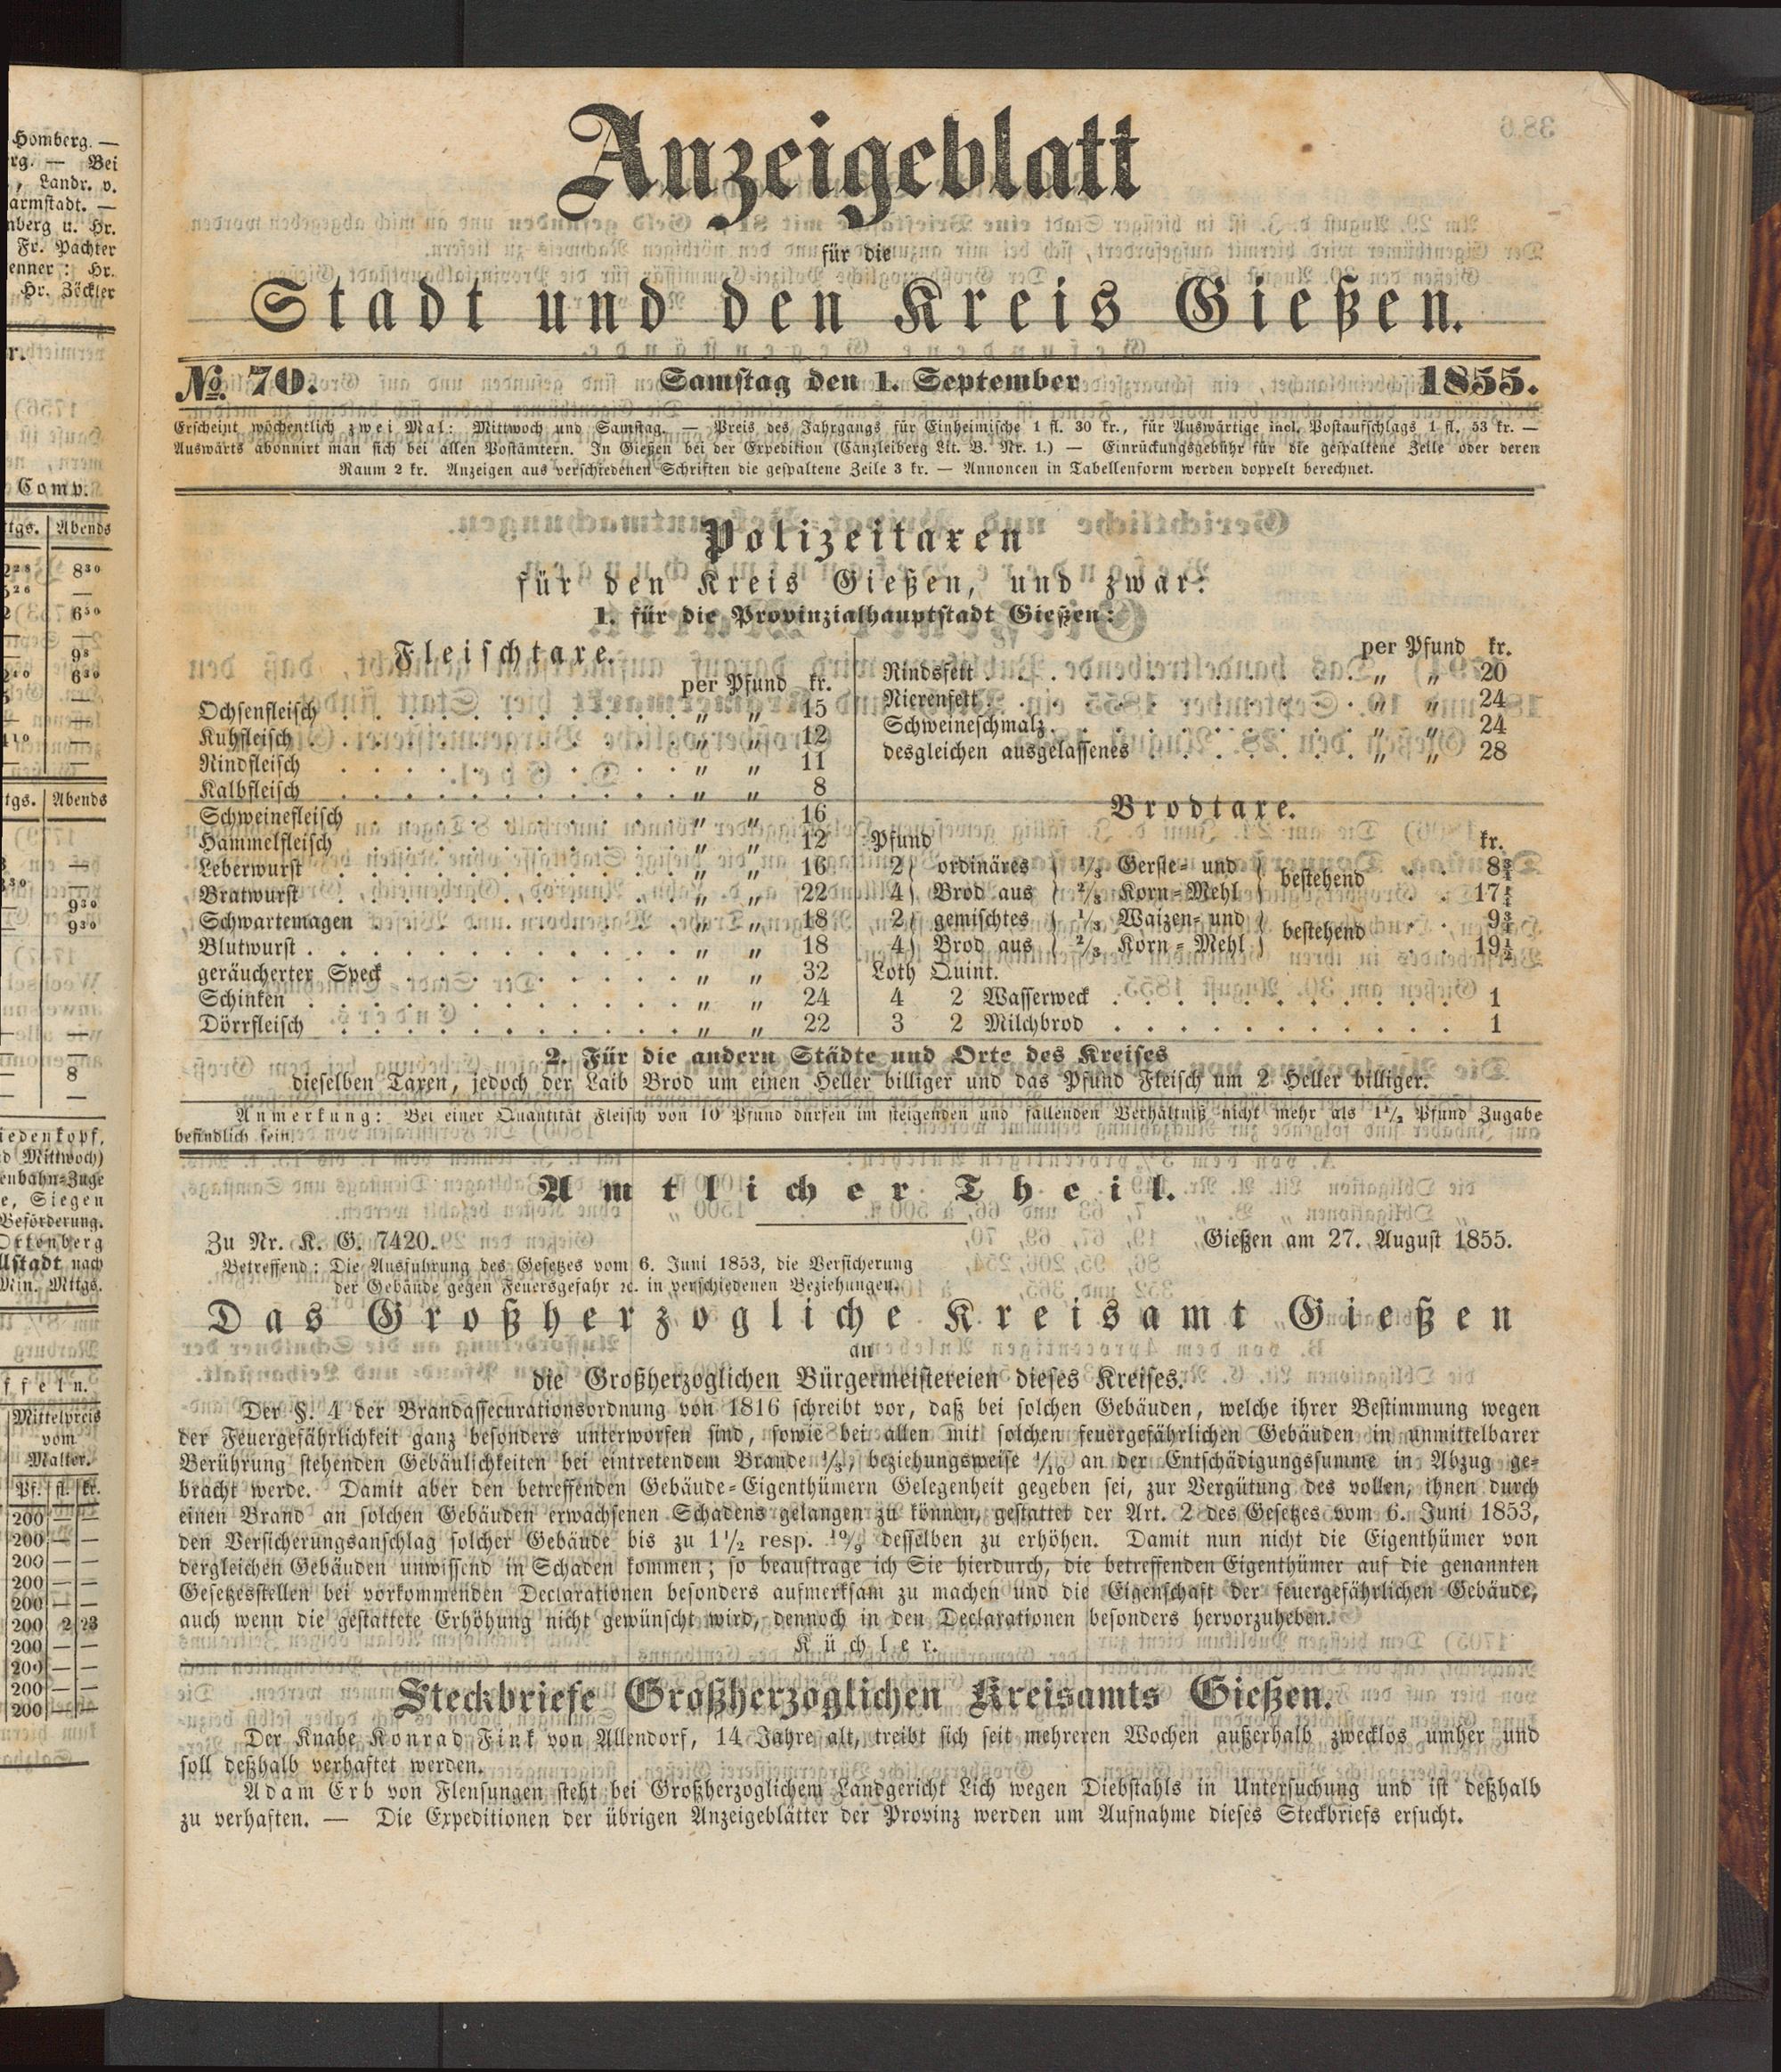 Anzeigeblatt
für die
Stadt und den Kreis Gießen.
No. 70. Samstag den 1. September 1855.
Erscheint wöchentlich zwei Mal: Mittwoch und Samstag. — Preis des Jahrgangs für Einheimische 1 fl. 30 kr., für Auswärtige incl. Postaufschlags 1 fl. 53 kr. —
Auswärts abonnirt man sich bei allen Postämtern. In Gießen bei der Expedition (Canzleiberg Lit. B. Nr. 1.) — Einrückungsgebühr für die gespaltene Zeile oder deren
Raum 2 kr. Anzeigen aus verschiedenen Schriften die gespaltene Zeile 3 kr. — Annoncen in Tabellenform werden doppelt berechnet.
Polizeitaxen
für den Kreis Gießen, und zwar:
1. für die Provinzialhauptstadt Gießen:
Fleischtaxe.
per Pfund kr.
Ochsenfleisch . . . „ „ 15
Kuhfleisch . . . „ „ 12
Rindfleisch . . . „ „ 11
Kalbfleisch . . . „ „ 8
Schweinefleisch . . . „ „ 16
Hammelfleisch . . . „ „ 12
Leberwurst . . . „ „ 16
Bratwurst . . . „ „ 22
Schwartemagen . . . „ „ 18
Blutwurst . . . „ „ 18
geräucherter Speck . . . „ „ 32
Schinken . . . „ „ 24
Dörrfleisch . . . „ „ 22
per Pfund kr.
Rindsfett . . . „ „ 20
Nierenfett . . . „ „ 24
Schweineschmalz . . . „ „ 24
desgleichen ausgelassenes . . . „ „ 28
Brodtaxe.
Pfund kr.
2 ) ordinäres ( 1/3 Gerste- und ) bestehend . . 8¾
4 ) Brod aus ( 2/3 Korn-Mehl ) . . 17½
2 ) gemischtes ( 1/3 Waizen- und ) bestehend . . 9¾
4 ) Brod aus ( 2/3 Korn-Mehl ) . . 19½
Loth Quint.
4 2 Wasserweck . . . 1
3 2 Milchbrod . . . 1
2. Für die andern Städte und Orte des Kreises
dieselben Taxen, jedoch der Laib Brod um einen Heller billiger und das Pfund Fleisch um 2 Heller billiger.
Anmerkung: Bei einer Quantität Fleisch von 10 Pfund dürfen im steigenden und fallenden Verhältniß nicht mehr als 1½ Pfund Zugabe
befindlich sein.
Amtlicher Theil.
Zu Nr. K. G. 7420. Gießen am 27. August 1855.
Betreffend: Die Ausführung des Gesetzes vom 6. Juni 1853, die Versicherung
der Gebäude gegen Feuersgefahr ꝛc. in verschiedenen Beziehungen.
Das Großherzogliche Kreisamt Gießen
an
die Großherzoglichen Bürgermeistereien dieses Kreises.
Der §. 4 der Brandassecurationsordnung von 1816 schreibt vor, daß bei solchen Gebäuden, welche ihrer Bestimmung wegen
der Feuergefährlichkeit ganz besonders unterworfen sind, sowie bei allen mit solchen feuergefährlichen Gebäuden in unmittelbarer
Berührung stehenden Gebäulichkeiten bei eintretendem Brande 1/3, beziehungsweise 1/10 an der Entschädigungssumme in Abzug ge-
bracht werde. Damit aber den betreffenden Gebäude-Eigenthümern Gelegenheit gegeben sei, zur Vergütung des vollen, ihnen durch
einen Brand an solchen Gebäuden erwachsenen Schadens gelangen zu können, gestattet der Art. 2 des Gesetzes vom 6. Juni 1853,
den Versicherungsanschlag solcher Gebäude bis zu 1½ resp. 10/9 desselben zu erhöhen. Damit nun nicht die Eigenthümer von
dergleichen Gebäuden unwissend in Schaden kommen; so beauftrage ich Sie hierdurch, die betreffenden Eigenthümer auf die genannten
Gesetzesstellen bei vorkommenden Declarationen besonders aufmerksam zu machen und die Eigenschaft der feuergefährlichen Gebäude,
auch wenn die gestattete Erhöhung nicht gewünscht wird, dennoch in den Declarationen besonders hervorzuheben.
Küchler.
Steckbriefe Großherzoglichen Kreisamts Gießen.
Der Knabe Konrad Fink von Allendorf, 14 Jahre alt, treibt sich seit mehreren Wochen außerhalb zwecklos umher und
soll deßhalb verhaftet werden.
Adam Erb von Flensungen steht bei Großherzoglichem Landgericht Lich wegen Diebstahls in Untersuchung und ist deßhalb
zu verhaften. — Die Expeditionen der übrigen Anzeigeblätter der Provinz werden um Aufnahme dieses Steckbriefs ersucht.